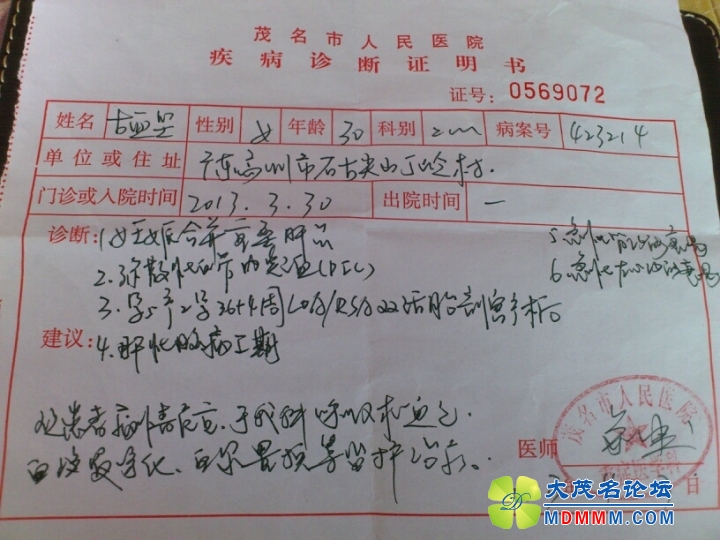 茂名市人民医院
疾病诊断证明书
证号: 0569072
姓名 性别 女 年龄 30 科别 病案号 423214
单位或住址 广东高州市石古尖山丁岭村.
门诊或入院时间 2013.3.30 出院时间 一
诊断: 1.妊娠合并重症肝炎 5.急性肾功能衰竭
2.弥散性血管内凝血(DIC) 6.急性
3.孕5产2孕36+4周LOA/RSA双活胎剖宫产术后
建议: 4.肝性脑病Ⅱ期
现患者病情危重,于我科呼吸机通气
血液净化、血浆置换等监护治疗.
医师
茂名市人民医院
日
大茂名论坛
MDMMM.COM